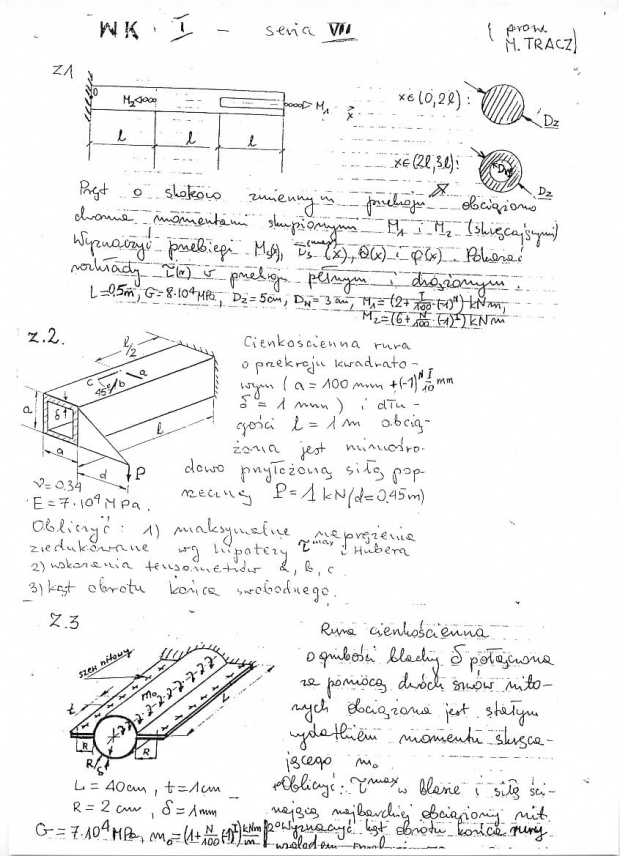 WK. I - seria VII
(prow. M. TRACZ)
Z1
0
M2
M1
x
x∈(0,2l):
Dz
l
l
l
x∈(2l,3l):
Dw
Dz
Pręt o skokowo zmiennym przekroju obciążono
dwoma momentami skupionymi M1 i M2 (skręcającymi)
Wyznaczyć przebiegi Ms(x), τs^(max)(x), Θ(x) i φ(x). Pokazać
rozkłady τ(r) w przekroju pełnym i drążonym.
L=0,5m, G=8·10⁴MPa, Dz=5cm, DN=3cm, M1=(2+I/100·(-1)^N)kNm,
M2=(6+N/100·(-1)^I)kNm
Z.2.
l/2
c
b
a
45°
a
δ
l
a
d
P
ν=0.34
E=7·10⁴MPa.
Cienkościenna rura
o przekroju kwadrato-
wym (a=100mm+(-1)^N I/10 mm
δ=1mm) i dłu-
gości l=1m obcią-
żona jest mimośro-
dowo przyłożoną siłą pop-
rzeczną P=1kN (d=0.45m)
Obliczyć: 1) maksymalne naprężenia
zredukowane wg hipotezy τmax i Hubera
2) wskazania tensometrów a, b, c.
3) kąt obrotu końca swobodnego.
Z.3
szew nitowy
m₀
t
L
R
R
R
δ
L=40cm, t=1cm
R=2cm, δ=1mm
Rura cienkościenna
o grubości blachy δ połączona
za pomocą dwóch szwów nito-
wych obciążona jest stałym
wydatkiem momentu skręca-
jącego m₀
Obliczyć: τmax w blasze i siłę ści-
nającą najbardziej obciążony nit.
G=7.10⁴MPa, m₀=(1+N/100(-1)^I) kNm/m
2° Wyznaczyć kąt obrotu końca rury
względem